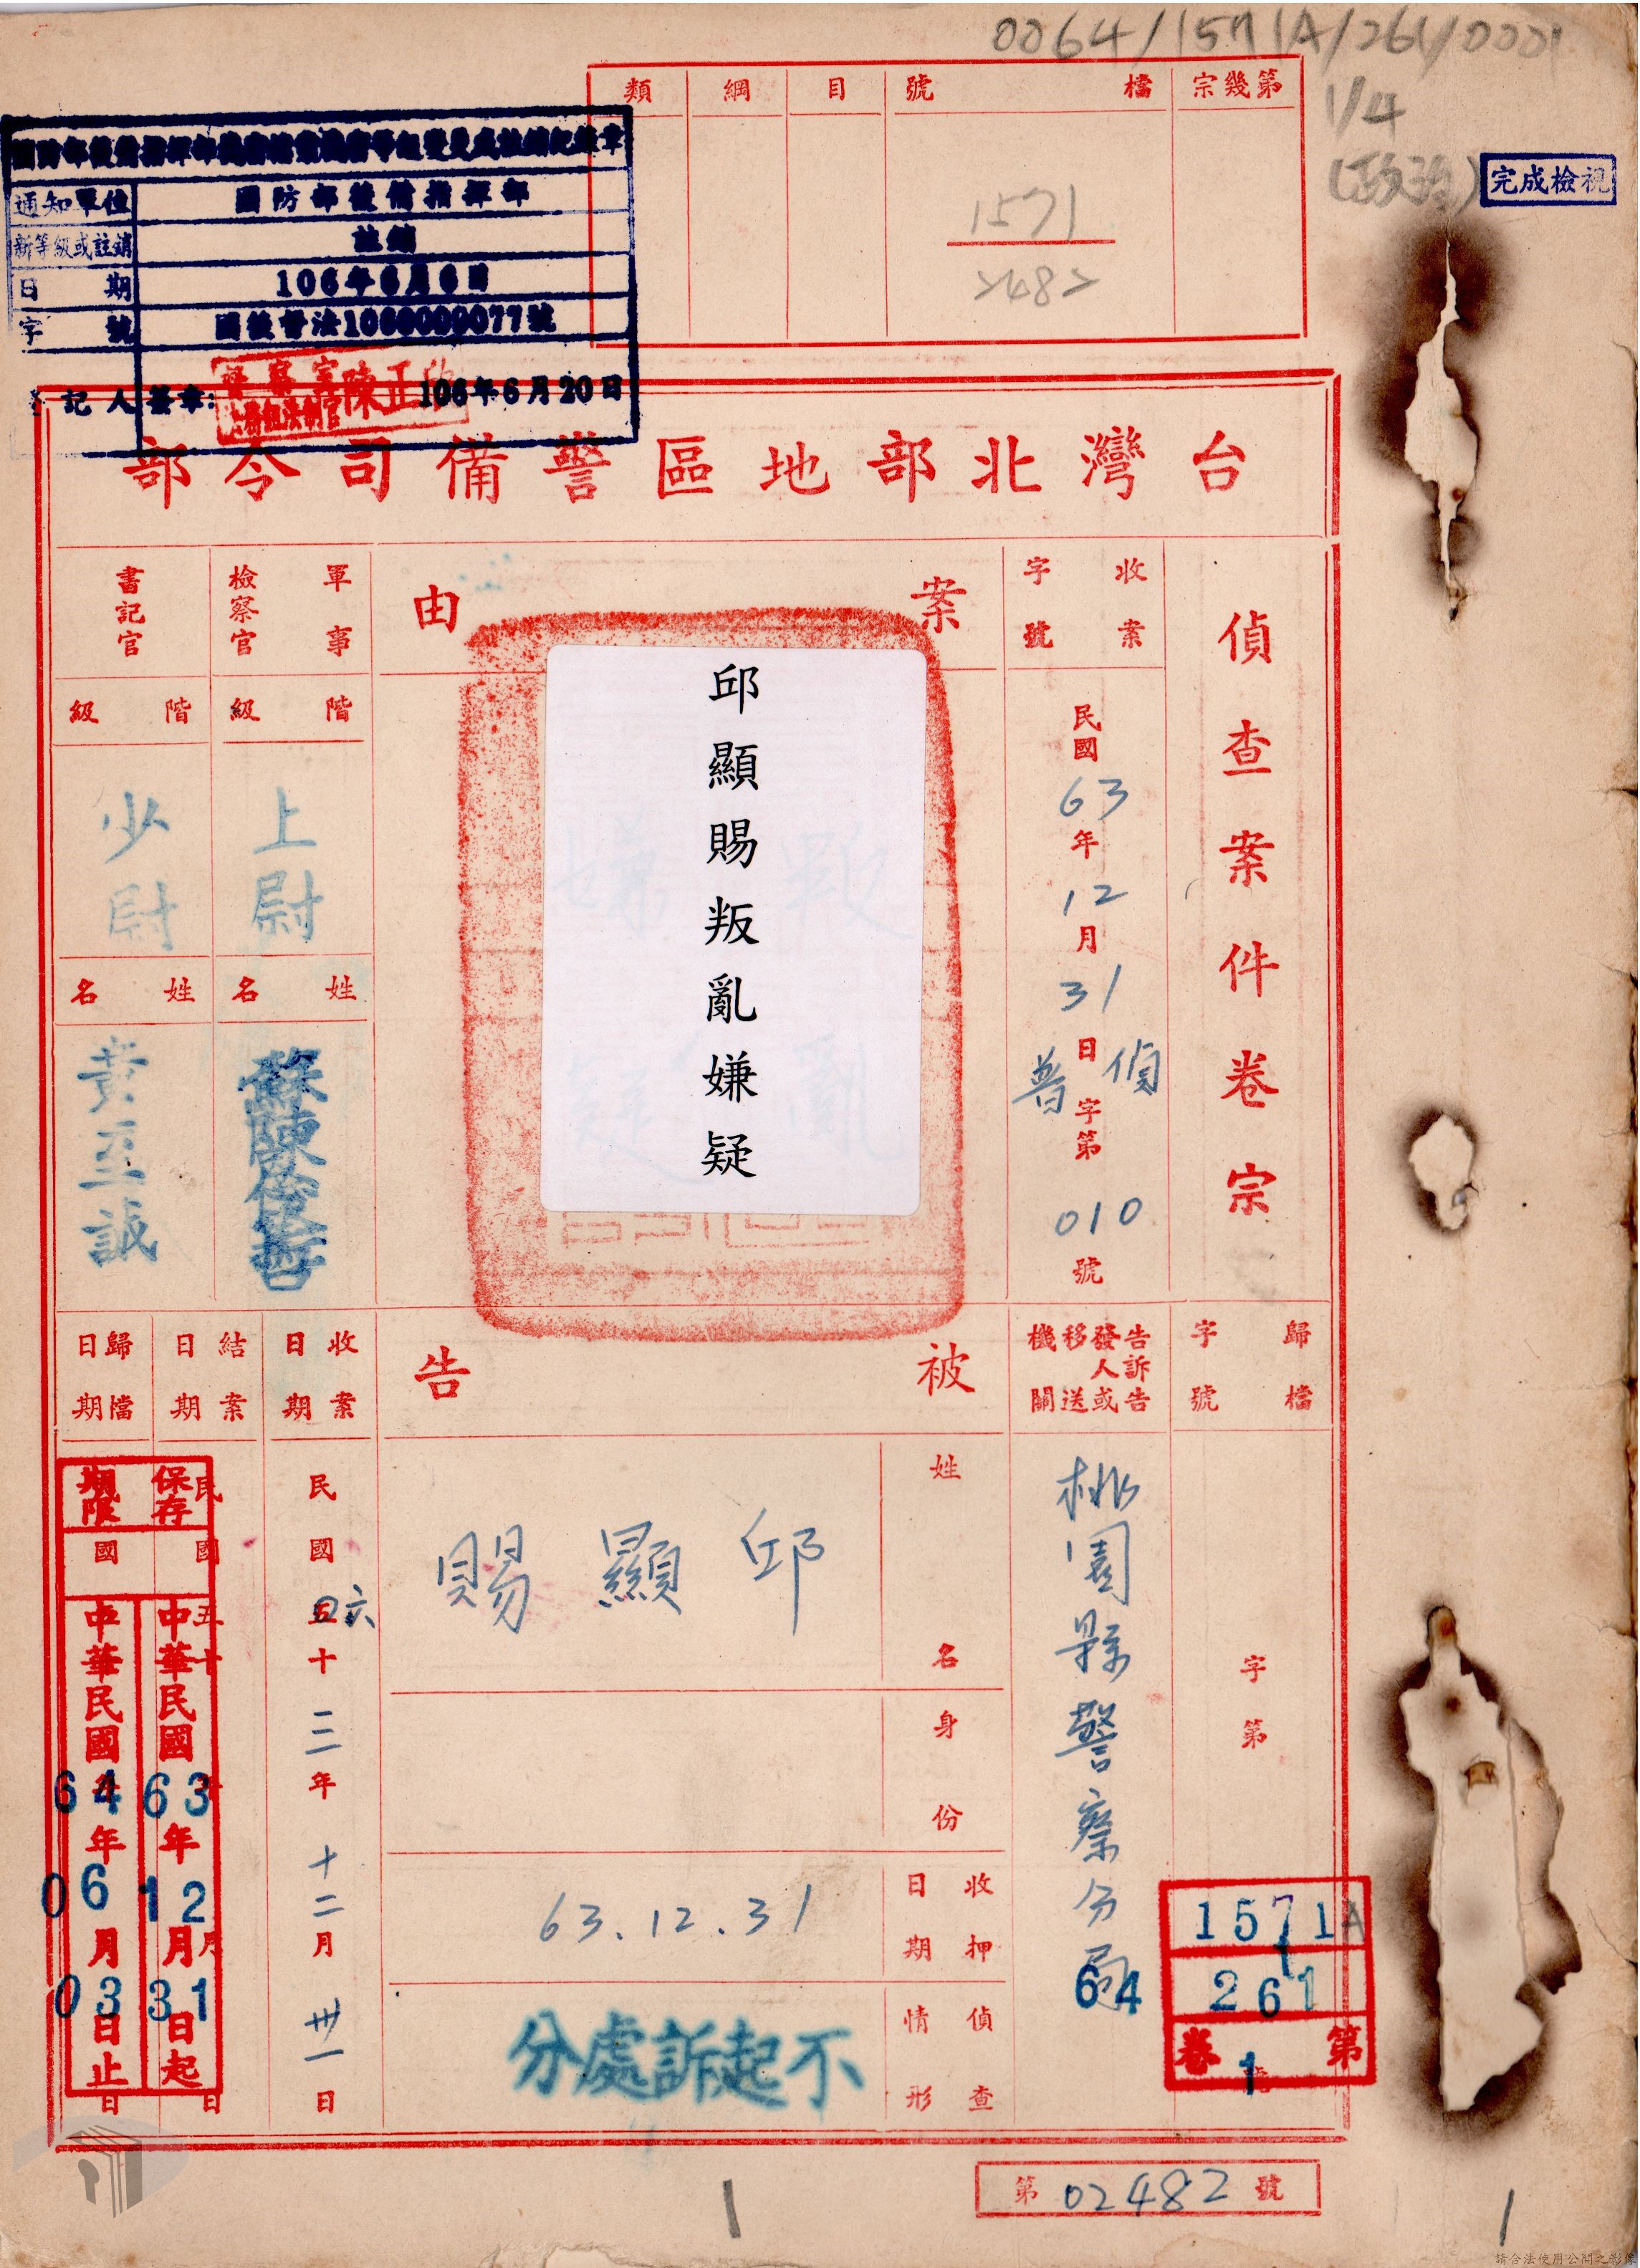 0064/1571A/261/0001
1/4
(政治)
完成檢視
第幾宗
檔號
目
綱
類
1571
2482
通知單位 國防部後備指揮部
新等級或註銷 註銷
日期 106年6月6日
字號 國後督法1060009077號
記人簽章: 陳正 106年6月20日
台灣北部地區警備司令部
偵查案件卷宗
收案字號
民國63年12月31日
偵普字第010號
案由
邱顯賜叛亂嫌疑
軍事檢察官
階級
上尉
姓名
書記官
階級
少尉
姓名
黃至誠
歸檔字號
字第
告訴告發人或移送機關
桃園縣警察分局
被告
姓名
邱顯賜
身份
收押日期
63.12.31
偵查情形
不起訴處分
收案日期
民國六十三年十二月卅一日
結案日期
歸檔日期
保存期限
中華民國63年12月31日起
中華民國64年06月03日止
64
1571A
261
第1卷
第02482號
請合法使用公開之影像